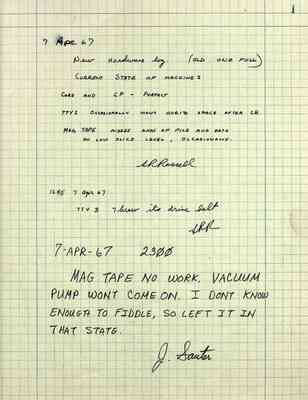 1
7 Apr 67
New hardware log. (old one full)
Current state of machine:
Card and LP - Perfect
TTY2 occasionally types words space after CR.
Mag tape misses ends of file and data
on low slice level, occasionally.
SRRussell
1245 7 Apr 67
TTY 3 Threw its drive belt
SRR
7-APR-67 2300
MAG TAPE NO WORK. VACUUM
PUMP WONT COME ON. I DONT KNOW
ENOUGH TO FIDDLE, SO LEFT IT IN
THAT STATE.
J. Sauter